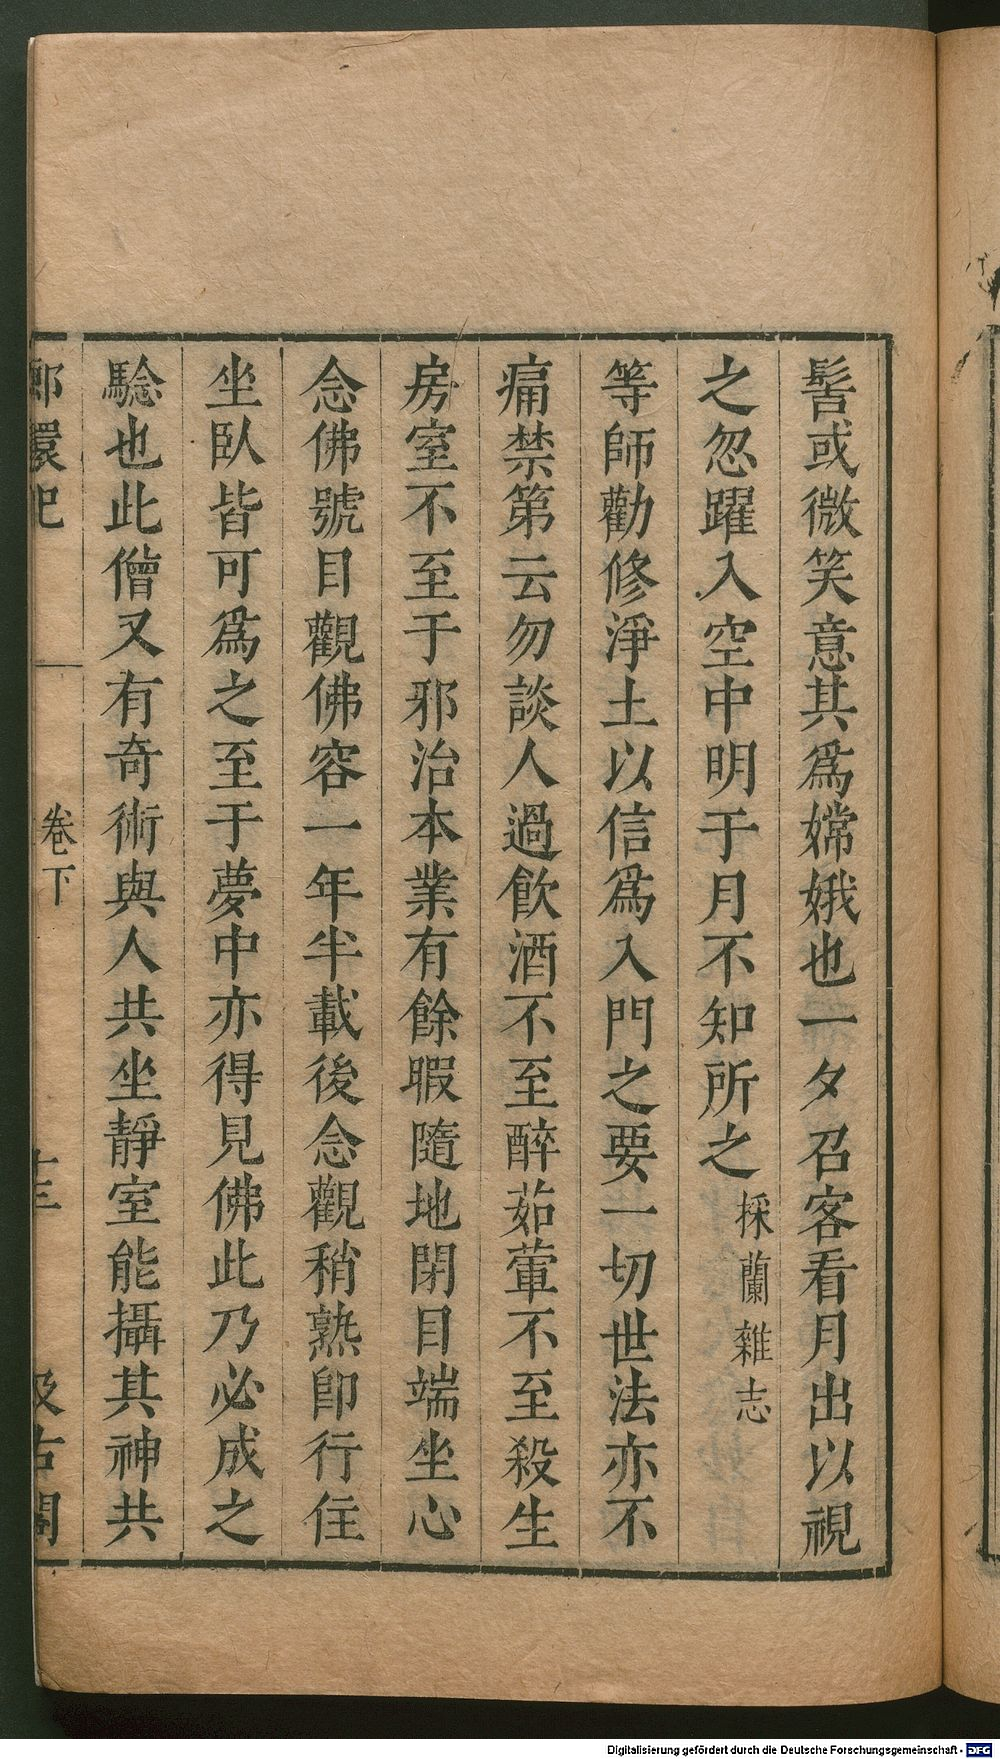 髻或微笑意其爲嫦娥也一夕召客看月出以視
之忽躍入空中明于月不知所之採蘭雜志
等師勸修淨土以信爲入門之要一切世法亦不
痛禁第云勿談人過飲酒不至醉茹葷不至殺生
房室不至于邪治本業有餘暇隨地閉目端坐心
念佛號目觀佛容一年半載後念觀稍熟卽行住
坐臥皆可爲之至于夢中亦得見佛此乃必成之
驗也此僧又有奇術與人共坐靜室能攝其神共
卷下
十三
汲古閣
Digitalisierung gefördert durch die Deutsche Forschungsgemeinschaft - DFG